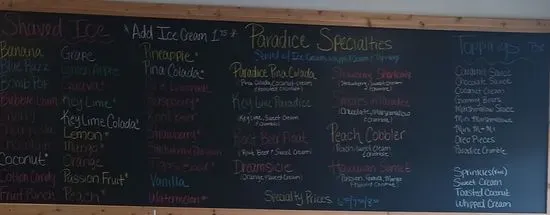 Shaved Ice
*Add Ice Cream 1.75*
Banana
Blue Razz
Bubble Gum
Cherry
Coconut*
Cotton Candy
Fruit Punch
Grape
Green Apple
Guava
Key Lime*
Key Lime Colada*
Lemon*
Mango*
Orange
Passion Fruit*
Peach*
Pineapple*
Pina Colada*
Pink Lemonade
Raspberry*
Root Beer
Strawberry*
Tiger's Blood*
Vanilla
Watermelon*
Paradice Specialties
Paradice Pina Colada
(Pina Colada, Coconut Cream
+ Toasted Coconut)
Key Lime Paradice
(Key Lime, Sweet Cream
+ Crumble)
Root Beer Float
(Root Beer + Sweet Cream)
Dreamsicle
(Orange + Sweet Cream)
(Strawberry, Sweet Cream
(Chocolate, Marshmallow
+ Crumble)
Peach Cobbler
(Peach, Sweet Cream
+ Crumble)
Hawaiian Sunset
Specialty Prices
Toppings 75¢
Caramel Sauce
Chocolate Sauce
Coconut Cream
Gummy Bears
Marshmallow Sauce
Mini Marshmallows
Mini M+M's
Oreo Pieces
Paradice Crumble
Sprinkles (free)
Sweet Cream
Toasted Coconut
Whipped Cream